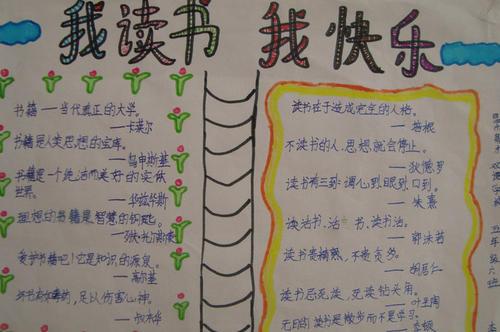 我读书 我快乐
书籍——当代真正的大学。
——卡莱尔
书籍是人类思想的宝库。
——乌申斯基
书籍是一个绝洁而美好的实体
世界。
——华兹华斯
理想的书籍是智慧的钥匙。
——列夫·托尔斯泰
爱护书籍吧!它是知识的源泉。
——高尔基
坏书有如毒药,足以伤害心神。
读书在于造成完全的人格。
——培根
不读书的人,思想就会停止。
——狄德罗
读书有三到:谓心到,眼到,口到。
——朱熹
读活书,活 书,读书活。
——郭沫若
读书要精熟,不要贪多。
——胡居仁
读书忌死读,死读钻牛角。
——叶圣陶